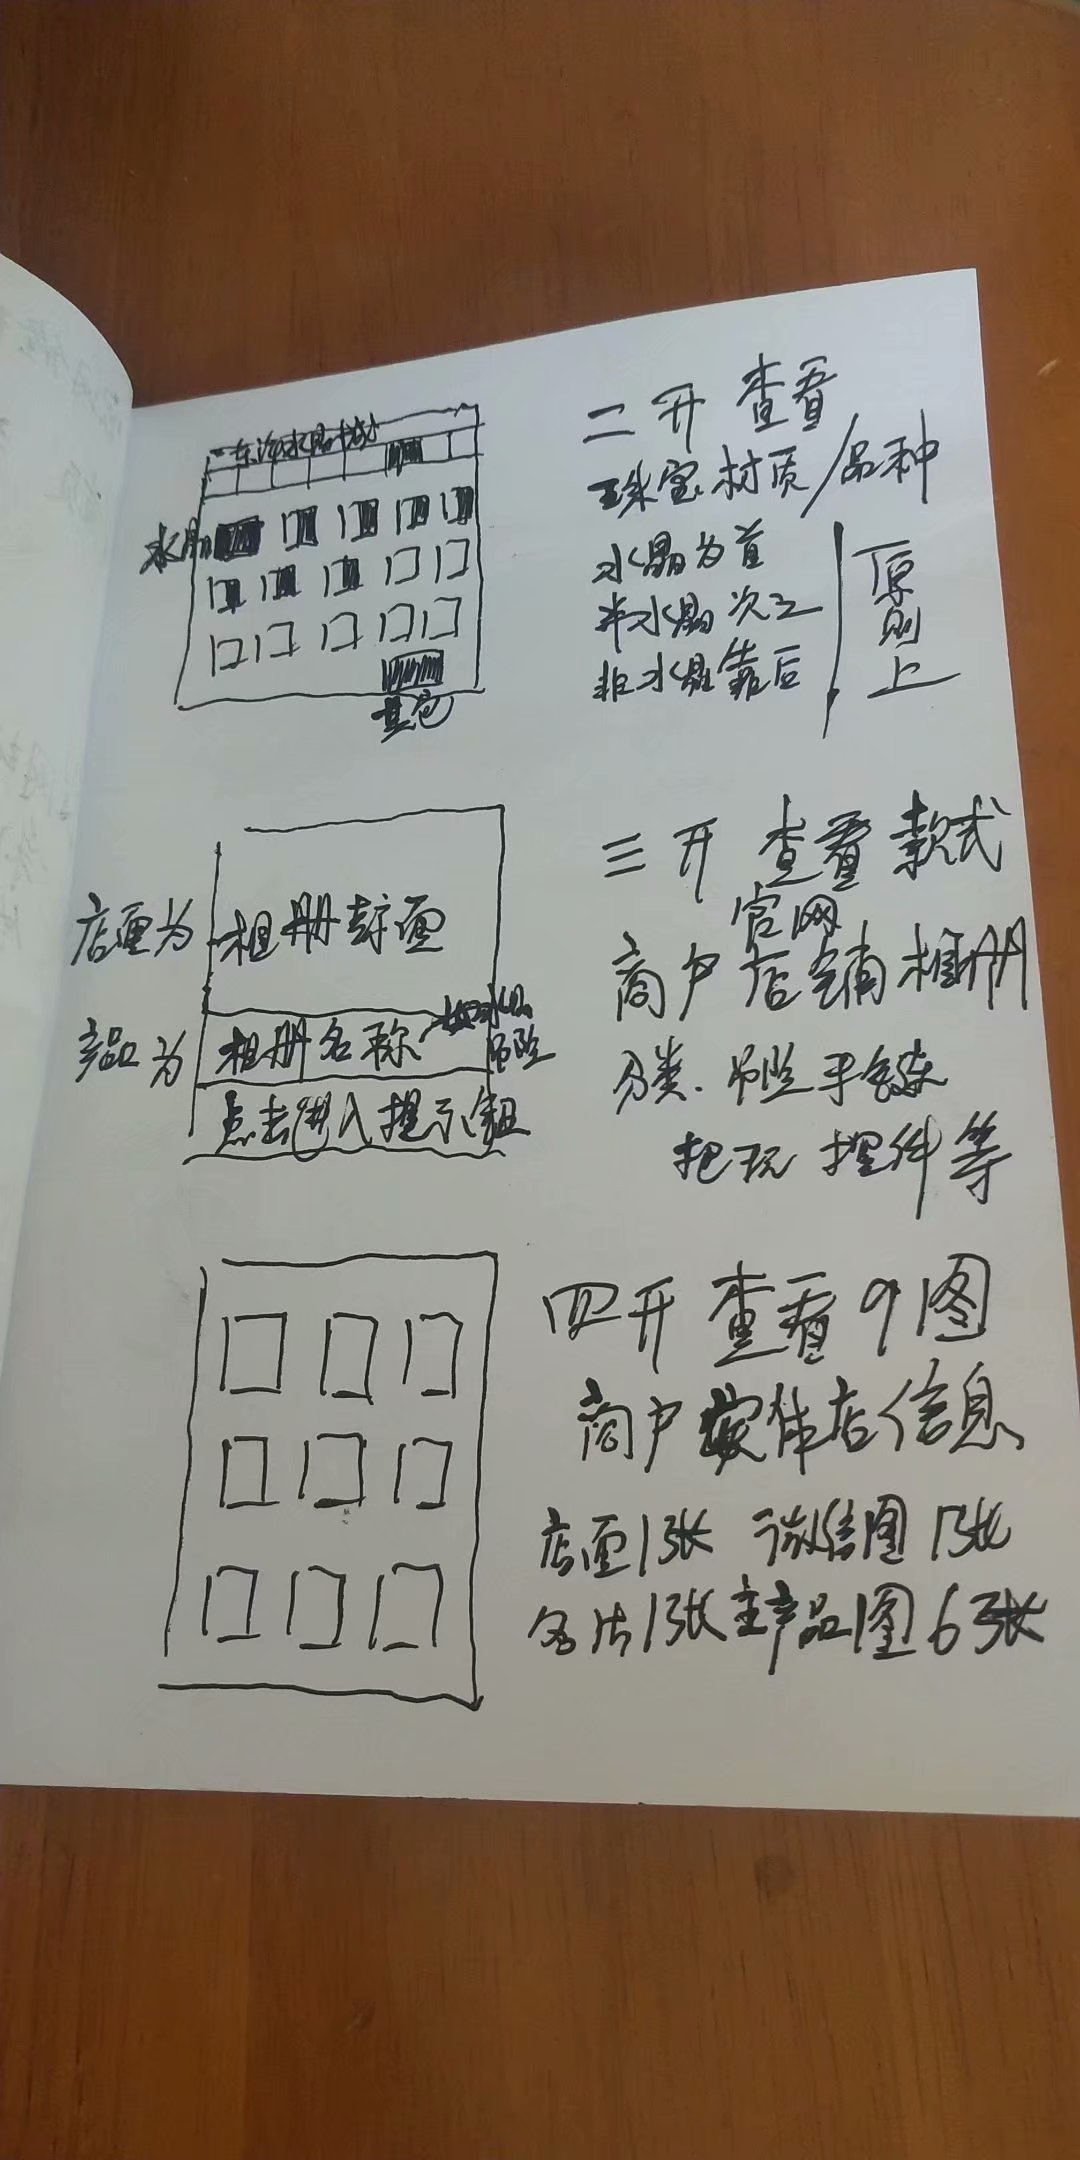 东海水晶城
水晶
其它
二开 查看
珠宝材质/品种
水晶为首
半水晶次之
非水晶靠后
原则上
店面为
相册封面
产品为
相册名称
如水晶
吊坠
点击进入提示钮
三开 查看 款式
官网
商户店铺相册
分类、吊坠手链
把玩 摆件等
四开 查看9图
商户实体店信息
店面1张 微信图1张
名片1张主产品图6张